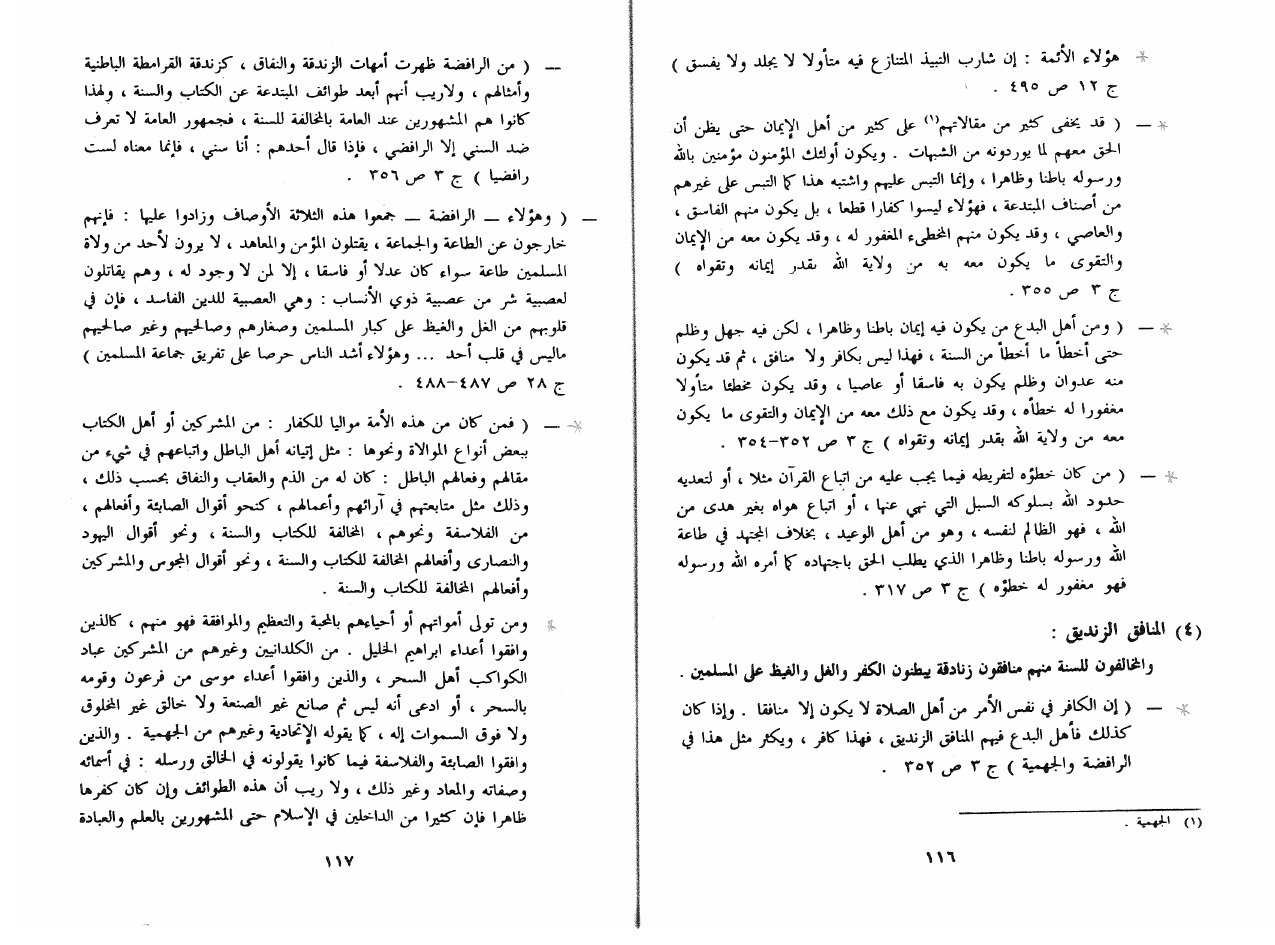 هؤلاء الأئمة : إن شارب النبيذ المتنازع فيه متأولا لا يجلد ولا يفسق )
ج ١٢ ص ٤٩٥ .
— ( قد يخفى كثير من مقالاتهم(١) على كثير من أهل الإيمان حتى يظن أن
الحق معهم لما يوردونه من الشبهات . ويكون أولئك المؤمنون مؤمنين بالله
ورسوله باطنا وظاهرا ، وإنما التبس عليهم واشتبه هذا كما التبس على غيرهم
من أصناف المبتدعة ، فهؤلاء ليسوا كفارا قطعا ، بل يكون منهم الفاسق ،
والعاصي ، وقد يكون منهم المخطىء المغفور له ، وقد يكون معه من الإيمان
والتقوى ما يكون معه به من ولاية الله بقدر إيمانه وتقواه )
ج ٣ ص ٣٥٥ .
— ( ومن أهل البدع من يكون فيه إيمان باطنا وظاهرا ، لكن فيه جهل وظلم
حتى أخطأ ما أخطأ من السنة ، فهذا ليس بكافر ولا منافق ، ثم قد يكون
منه عدوان وظلم يكون به فاسقا أو عاصيا ، وقد يكون مخطئا متأولا
مغفورا له خطأه ، وقد يكون مع ذلك معه من الإيمان والتقوى ما يكون
معه من ولاية الله بقدر إيمانه وتقواه ) ج ٣ ص ٣٥٢–٣٥٤ .
— ( من كان خطؤه لتفريطه فيما يجب عليه من اتباع القرآن مثلا ، أو لتعديه
حدود الله بسلوكه السبل التي نهي عنها ، أو اتباع هواه بغير هدى من
الله ، فهو الظالم لنفسه ، وهو من أهل الوعيد ، بخلاف المجتهد في طاعة
الله ورسوله باطنا وظاهرا الذي يطلب الحق باجتهاده كما أمره الله ورسوله
فهو مغفور له خطؤه ) ج ٣ ص ٣١٧ .
(٤) المنافق الزنديق :
والمخالفون للسنة منهم منافقون زنادقة يبطنون الكفر والغل والغيظ على المسلمين .
— ( إن الكافر في نفس الأمر من أهل الصلاة لا يكون إلا منافقا . وإذا كان
كذلك فأهل البدع فيهم المنافق الزنديق ، فهذا كافر ، ويكثر مثل هذا في
الرافضة والجهمية ) ج ٣ ص ٣٥٢ .
(١) الجهمية .
١١٦
— ( من الرافضة ظهرت أمهات الزندقة والنفاق ، كزندقة القرامطة الباطنية
وأمثالهم ، ولاريب أنهم أبعد طوائف المبتدعة عن الكتاب والسنة ، ولهذا
كانوا هم المشهورين عند العامة بالمخالفة للسنة ، فجمهور العامة لا تعرف
ضد السني إلا الرافضي ، فإذا قال أحدهم : أنا سني ، فإنما معناه لست
رافضيا ) ج ٣ ص ٣٥٦ .
— ( وهؤلاء — الرافضة — جمعوا هذه الثلاثة الأوصاف وزادوا عليها : فإنهم
خارجون عن الطاعة والجماعة ، يقتلون المؤمن والمعاهد ، لا يرون لأحد من ولاة
المسلمين طاعة سواء كان عدلا أو فاسقا ، إلا لمن لا وجود له ، وهم يقاتلون
لعصبية شر من عصبية ذوي الأنساب : وهي العصبية للدين الفاسد ، فإن في
قلوبهم من الغل والغيظ على كبار المسلمين وصغارهم وصالحيهم وغير صالحيهم
ماليس في قلب أحد ... وهؤلاء أشد الناس حرصا على تفريق جماعة المسلمين )
ج ٢٨ ص ٤٨٧–٤٨٨ .
— ( فمن كان من هذه الأمة مواليا للكفار : من المشركين أو أهل الكتاب
ببعض أنواع الموالاة ونحوها : مثل إتيانه أهل الباطل واتباعهم في شيء من
مقالهم وفعالهم الباطل : كان له من الذم والعقاب والنفاق بحسب ذلك ،
وذلك مثل متابعتهم في آرائهم وأعمالهم ، كنحو أقوال الصابئة وأفعالهم ،
من الفلاسفة ونحوهم ، المخالفة للكتاب والسنة ، ونحو أقوال اليهود
والنصارى وأفعالهم المخالفة للكتاب والسنة ، ونحو أقوال المجوس والمشركين
وأفعالهم المخالفة للكتاب والسنة .
ومن تولى أمواتهم أو أحياءهم بالمحبة والتعظيم والموافقة فهو منهم ، كالذين
وافقوا أعداء ابراهيم الخليل . من الكلدانيين وغيرهم من المشركين عباد
الكواكب أهل السحر ، والذين وافقوا أعداء موسى من فرعون وقومه
بالسحر ، أو ادعى أنه ليس ثم صانع غير الصنعة ولا خالق غير المخلوق
ولا فوق السموات إله ، كما يقوله الإتحادية وغيرهم من الجهمية . والذين
وافقوا الصابئة والفلاسفة فيما كانوا يقولونه في الخالق ورسله : في أسمائه
وصفاته والمعاد وغير ذلك ، ولا ريب أن هذه الطوائف وإن كان كفرها
ظاهرا فإن كثيرا من الداخلين في الإسلام حتى المشهورين بالعلم والعبادة
١١٧